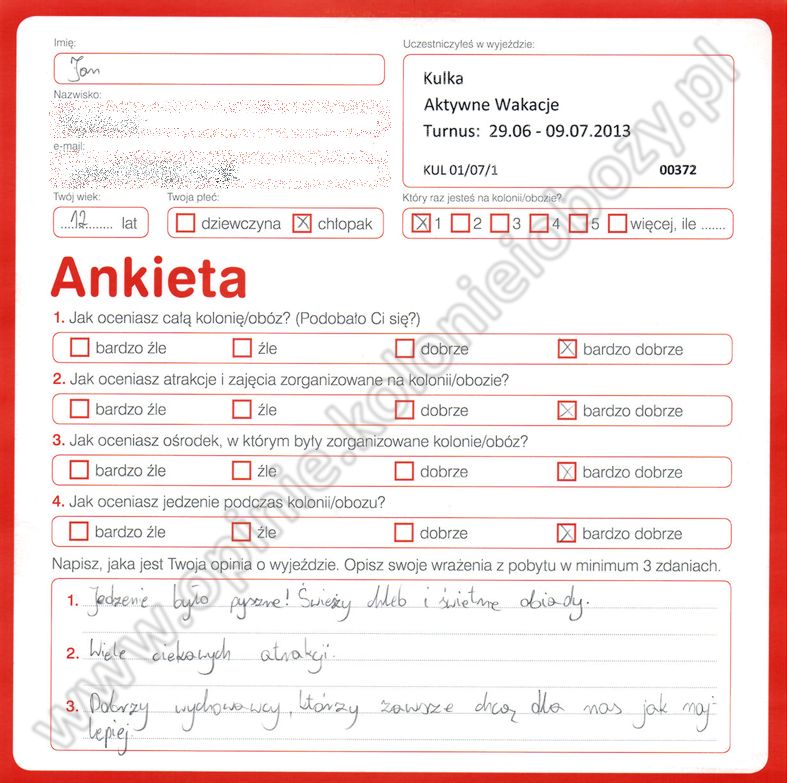 Imię:
Jan
Nazwisko:
e-mail:
Twój wiek:
12 lat
Twoja płeć:
dziewczyna chłopak
Uczestniczyłeś w wyjeździe:
Kulka
Aktywne Wakacje
Turnus: 29.06 - 09.07.2013
KUL 01/07/1 00372
Który raz jesteś na kolonii/obozie?
1 2 3 4 5 więcej, ile .......
Ankieta
1. Jak oceniasz całą kolonię/obóz? (Podobało Ci się?)
bardzo źle źle dobrze bardzo dobrze
2. Jak oceniasz atrakcje i zajęcia zorganizowane na kolonii/obozie?
bardzo źle źle dobrze bardzo dobrze
3. Jak oceniasz ośrodek, w którym były zorganizowane kolonie/obóz?
bardzo źle źle dobrze bardzo dobrze
4. Jak oceniasz jedzenie podczas kolonii/obozu?
bardzo źle źle dobrze bardzo dobrze
Napisz, jaka jest Twoja opinia o wyjeździe. Opisz swoje wrażenia z pobytu w minimum 3 zdaniach.
1. Jedzenie było pyszne! Świeży chleb i świetne obiady.
2. Wiele ciekawych atrakcji.
3. Dobrzy wychowawcy, którzy zawsze chcą dla nas jak naj-
lepiej.
www.opinie.kolonieiobozy.pl